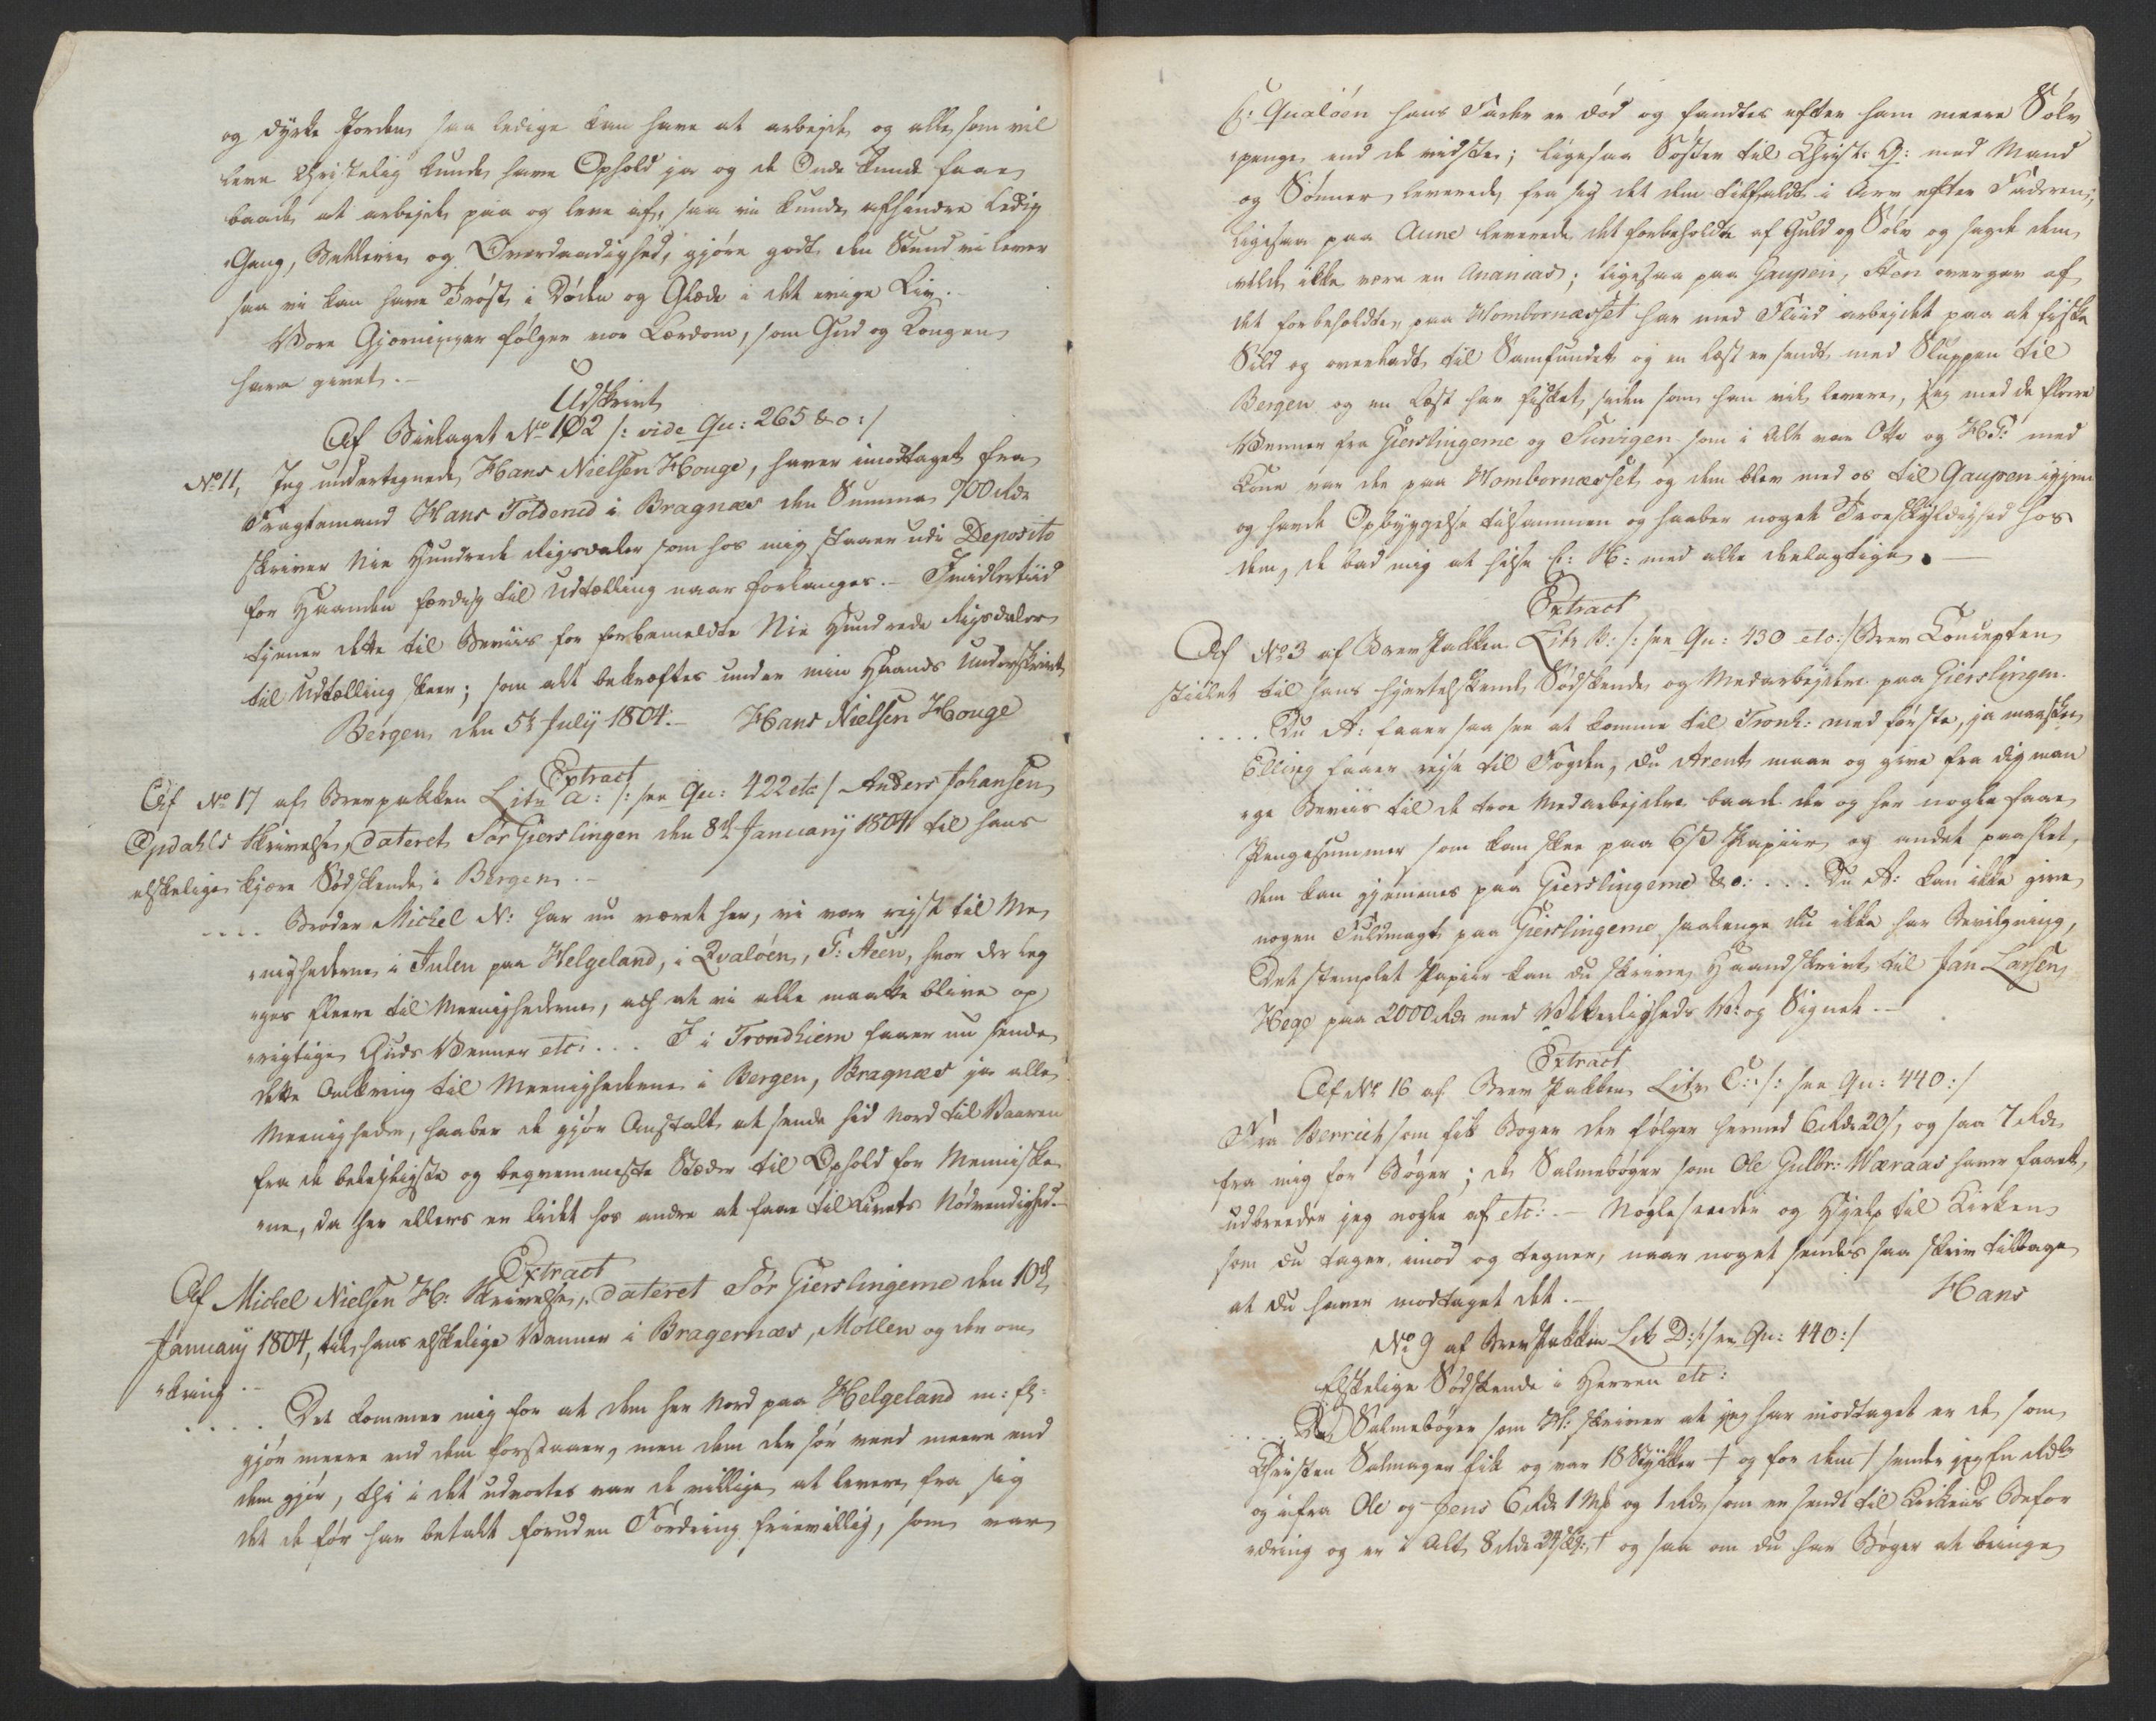 og dyrke Jorden saa ledige kan have at arbejde og alle som vil
leve Christelig kunde have Ophold ja og de Onde kunde faae
baade at arbejde paa og leve af, saa vi kunde afhindre Ledig
„Gang, Betlerie og Overdaadighed, gjøre godt den Stund vi lever
saa vi kan have Trøst i Døden og Glæde i det evige Liv.
Vore Gjerninger følger vor Lærdom, som Gud og Kongen
have givet. –
Udskrivt
Af Bielaget No 102 /: vide Qu: 265 &c:/
No 11, Jeg undertegnede Hans Nielsen Houge, haver imodtaget fra
Fragtemand Hans Toldened i Bragnæs den Summa 900 Rdr
skriver Nie Hundrede Rigsdaler som hos mig staaer udi Deposito
for Haanden færdig til Udtælling naar forlanges. – Imidlertiid
tjener dette til Beviis for forbemeldte Nie Hundrede Rigsdaler
til Udtælling skeer; som alt bekræftes under min Haands Underskrivt
Bergen den 5te July 1804. – Hans Nielsen Houge
Extract
Af No 17 af Brevpakken Litr a: /: see Qu: 422 etc / Anders Johansen
Opdahls Skrivelse, dateret Sør Gierslingen den 8de January 1804 til hans
elskelige kjære Sødskende i Bergen. –
.... Broder Michel N: har nu været her, vi var rejst til Me
„nighederne i Julen paa Helgeland, i Qvaløen, T: Aeen, hvor der leg
„ges fleere til Meenighederne, ach at vi alle maatte blive op
„rigtige Guds Venner etc: ... I i Trondhiem faaer nu sende
dette Omkring til Meenighederne i Bergen, Bragnæs ja alle
Meenigheder, haaber de gjør Anstalt at sende hid Nord til Vaaren
fra de belejligste og beqvemmeste Stæder til Ophold for Menniske
„ne, da her ellers er lidet hos andre at faae til Livets Nødvendighed. –
Extract
Af Michel Nielsen H: Skrivelse, dateret Sør Gierslingerne den 10de
January 1804, til hans elskelige Venner i Bragernæs, Mollen og der om
„kring –
..... Det kommer mig for at dem her Nord paa Helgeland m: fl:
gjør meere end dem forstaaer, men dem der sør veed meere end
dem gjør, thi i det udvortes var de villige at levere fra sig
det de før har betalt foruden Fordring frievillig, som var
E: Qualöen hans Fader er død og fandtes efter ham meere Sølv
„penge end de vidste; ligesaa Søster til Christ: G: med Mand
og Sønner leverede fra sig det dem tilfaldt i Arv efter Faderen;
ligesaa paa Aune leverede det forbeholdte af Guld og Sølv og sagde dem
vilde ikke være en Ananias; ligesaa paa Gaupen, Hon overgav af
det forbeholdte, paa Hombornæsset har med Fliid arbejdet paa at fiske
Sild og overladt til Samfundet og en Læst er sendt med Sluppen til
Bergen og en Læst har fisket siden som han vil levere, jeg med de flere
Venner fra Gierslingerne og Survigen som i Alt var Otte og H: T: med
Kone var der paa Hombornæsset og dem blev med os til Gaupen igjen
og havde Opbyggelse tilsammen og haaber noget Troeskyldighed hos
dem, de bad mig at hilse E: H: med alle deelagtige. –
Extract
Af No 3 af BrevPakken Litr B: /: see Qu: 430 etc:/ Brev Concepten
stilet til hans hjertelskende Sødskende og Medarbejdere paa Gierslingen.
.... Du A: faaer saa see at komme til Tronh: med første, ja maaskee
Elling faaer rejse til Fogden, du Arent maae og give fra dig man
„ge Beviis til de troe Medarbejdere baade der og her nogle faae
Pengesummer som kan skee paa 6 s Papiir og andet paa slet,
dem kan gjemmes paa Gierslingerne &c: ... Du A: kan ikke give
nogen Fuldmagt paa Gierslingerne saalenge du ikke har Bevilgning,
Det stemplet Papiir kan du skrive Haandskrivt til Jan Larsen
Hege paa 2000 Rdr med Vitterligheds V: og Signet. –
Extract
Af No 16 af Brev Pakken Litr C: /: see Qu: 440:/
Fra Berrich som fik Bøger der følger hermed 6 Rdr 20 s, og saa 7 Rdr
fra mig for Bøger; De Salmebøger som Ole Gulbr: Wæraas haver faaet,
udbreeder jeg nogle af etc: – Nogle sender og Hjelp til Kirken
som du tager imod og tegner, naar noget sendes saa skriv tilbage
at du haver modtaget det. – Hans
No 9 af BrevPakken Litr D: /: see Qu: 440:/
Elskelige Sødskende i Herren etc:
.... De Salmebøger som H: skriver at jeg har modtaget er de som
Christen Salmager fik og var 18 Stykker † og for dem † sender jeg En Rdlr
og ifra Ole og Jens 6 Rdr 1 Mk og 1 Rdr som er sendt til Kirkens Befor
„dring og er i Alt 8 Rdr 24 s † og saa om du har Bøger at bringe